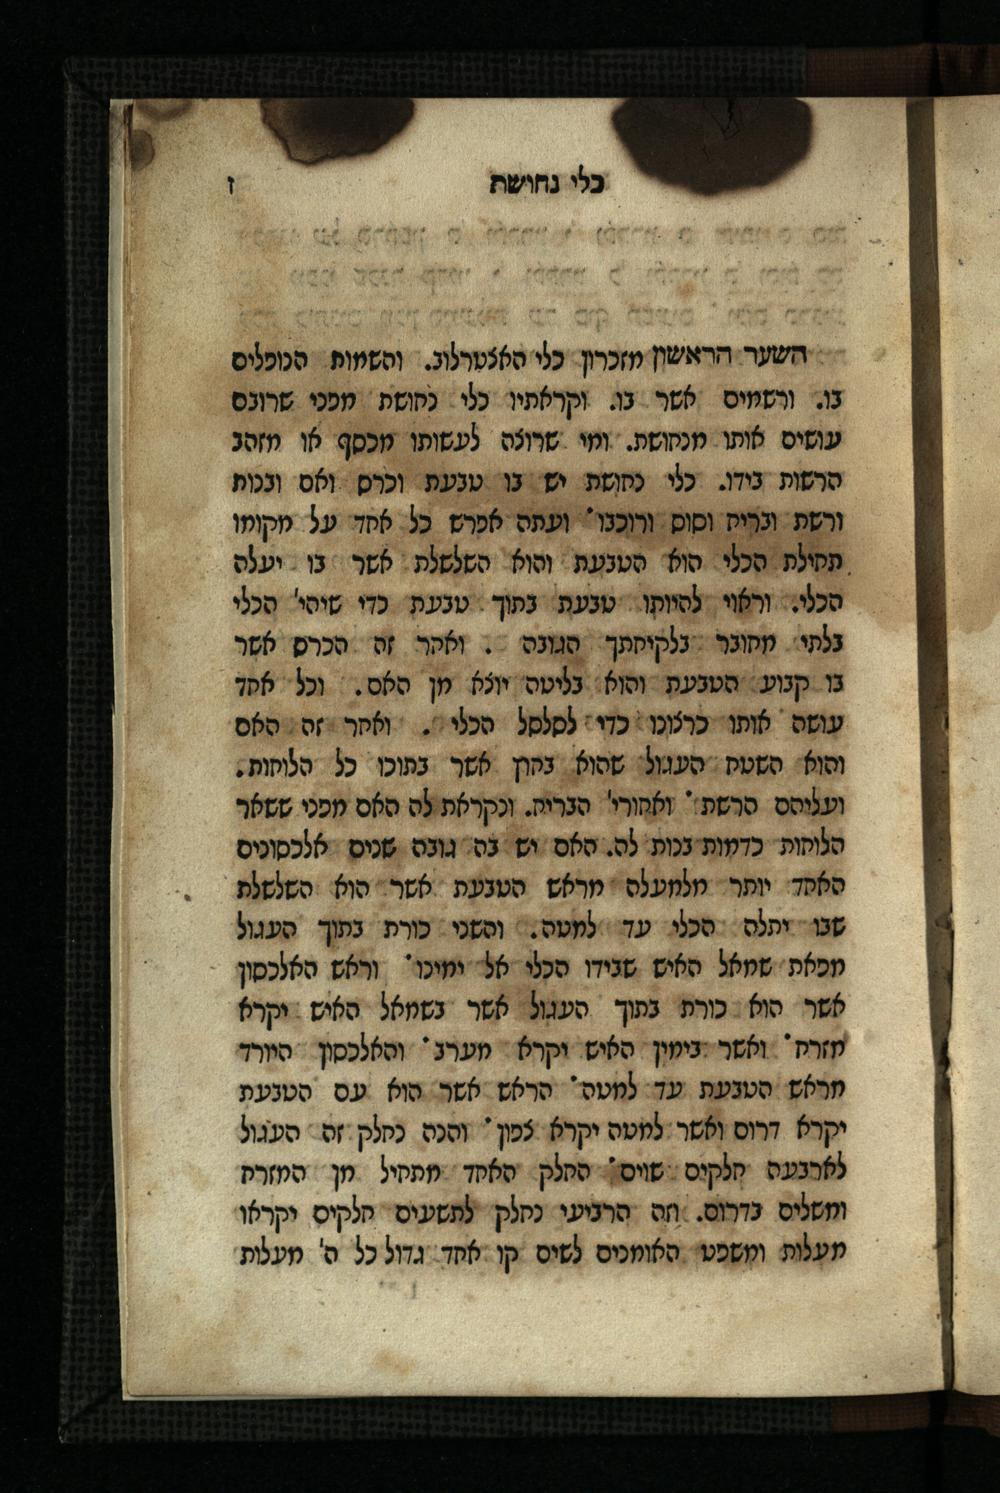 כלי נחושת ז
השער הראשון מזכרון כלי האצטרלוב. והשמות הנופלים
בו. ורשמים אשר בו. וקראתיו כלי נחושת מפני שרובם
עושים אותו מנחושת. ומי שרוצה לעשותו מכסף או מזהב
הרשות בידו. כלי נחושת יש בו טבעת וכרס ואם ובנות
ורשת ובריח וסוס ורוכבו ועתה אפרש כל אחד על מקומו
תחילת הכלי הוא הטבעת והוא השלשלת אשר בו יעלה
הכלי. וראוי להיותו טבעת בתוך טבעת כדי שיהי' הכלי
בלתי מחובר בלקיחתך הגובה . ואחר זה הכרס אשר
בו קבוע הטבעת והוא בליטה יוצא מן האם. וכל אחד
עושה אותו כרצונו כדי לסלסל הכלי . ואחר זה האם
והוא השטח העגול שהוא בהרן אשר בתוכו כל הלוחות.
ועליהם הרשת ואחורי' הבריח. ונקראת לה האם מפני ששאר
הלוחות כדמות בנות לה. האם יש בה גובה שנים אלכסונים
האחד יותר מלמעלה מראש הטבעת אשר הוא השלשלת
שבו יתלה הכלי עד למטה. והשני כורת בתוך העגול
מפאת שמאל האיש שבידו הכלי אל ימינו וראש האלכסון
אשר הוא כורת בתוך העגול אשר בשמאל האיש יקרא
מזרח ואשר בימין האיש יקרא מערב והאלכסון היורד
מראש הטבעת עד למטה הראש אשר הוא עם הטבעת
יקרא דרום ואשר למטה יקרא צפון והנה נחלק זה העגול
לארבעה חלקים שוים החלק האחד מתחיל מן המזרח
ומשלים בדרום. וזה הרביעי נחלק לתשעים חלקים יקראו
מעלות ומשפט האומנים לשים קו אחד גדול כל ה' מעלות